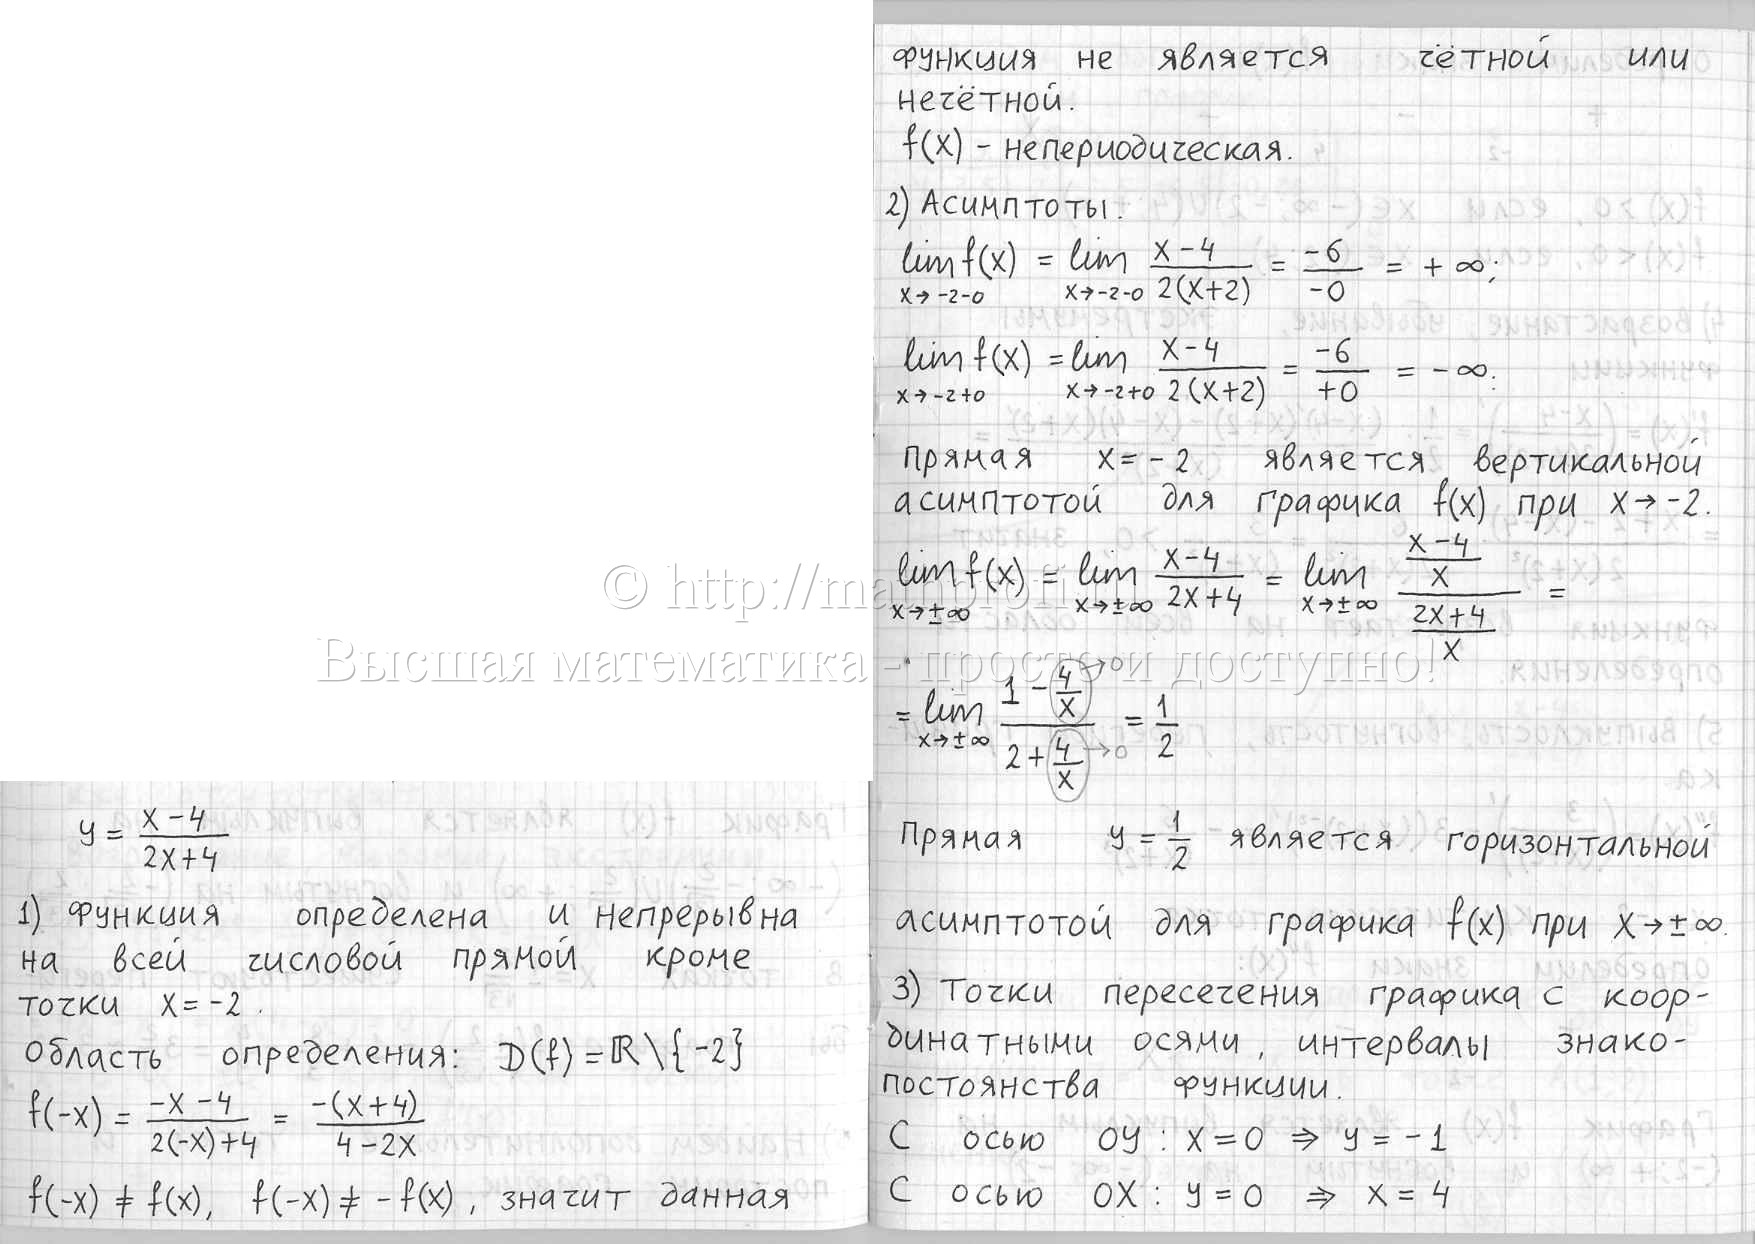 y = \frac{x-4}{2x+4}
1) Функция определена и непрерывна
на всей числовой прямой кроме
точки x = -2.
Область определения: D(f) = ℝ \ {-2}
f(-x) = \frac{-x-4}{2(-x)+4} = \frac{-(x+4)}{4-2x}
f(-x) ≠ f(x), f(-x) ≠ -f(x), значит данная
функция не является чётной или
нечётной.
f(x) - непериодическая.
2) Асимптоты.
\lim_{x→-2-0} f(x) = \lim_{x→-2-0} \frac{x-4}{2(x+2)} = \frac{-6}{-0} = +∞;
\lim_{x→-2+0} f(x) = \lim_{x→-2+0} \frac{x-4}{2(x+2)} = \frac{-6}{+0} = -∞.
Прямая x = -2 является вертикальной
асимптотой для графика f(x) при x → -2.
\lim_{x→±∞} f(x) = \lim_{x→±∞} \frac{x-4}{2x+4} = \lim_{x→±∞} \frac{\frac{x-4}{x}}{\frac{2x+4}{x}} =
= \lim_{x→±∞} \frac{1-\frac{4}{x}^{→0}}{2+\frac{4}{x}^{→0}} = \frac{1}{2}
Прямая y = \frac{1}{2} является горизонтальной
асимптотой для графика f(x) при x → ±∞.
3) Точки пересечения графика с коор-
динатными осями, интервалы знако-
постоянства функции.
С осью OY: x = 0 ⇒ y = -1
С осью OX: y = 0 ⇒ x = 4
© http://ma
Высшая математика - просто и доступно!